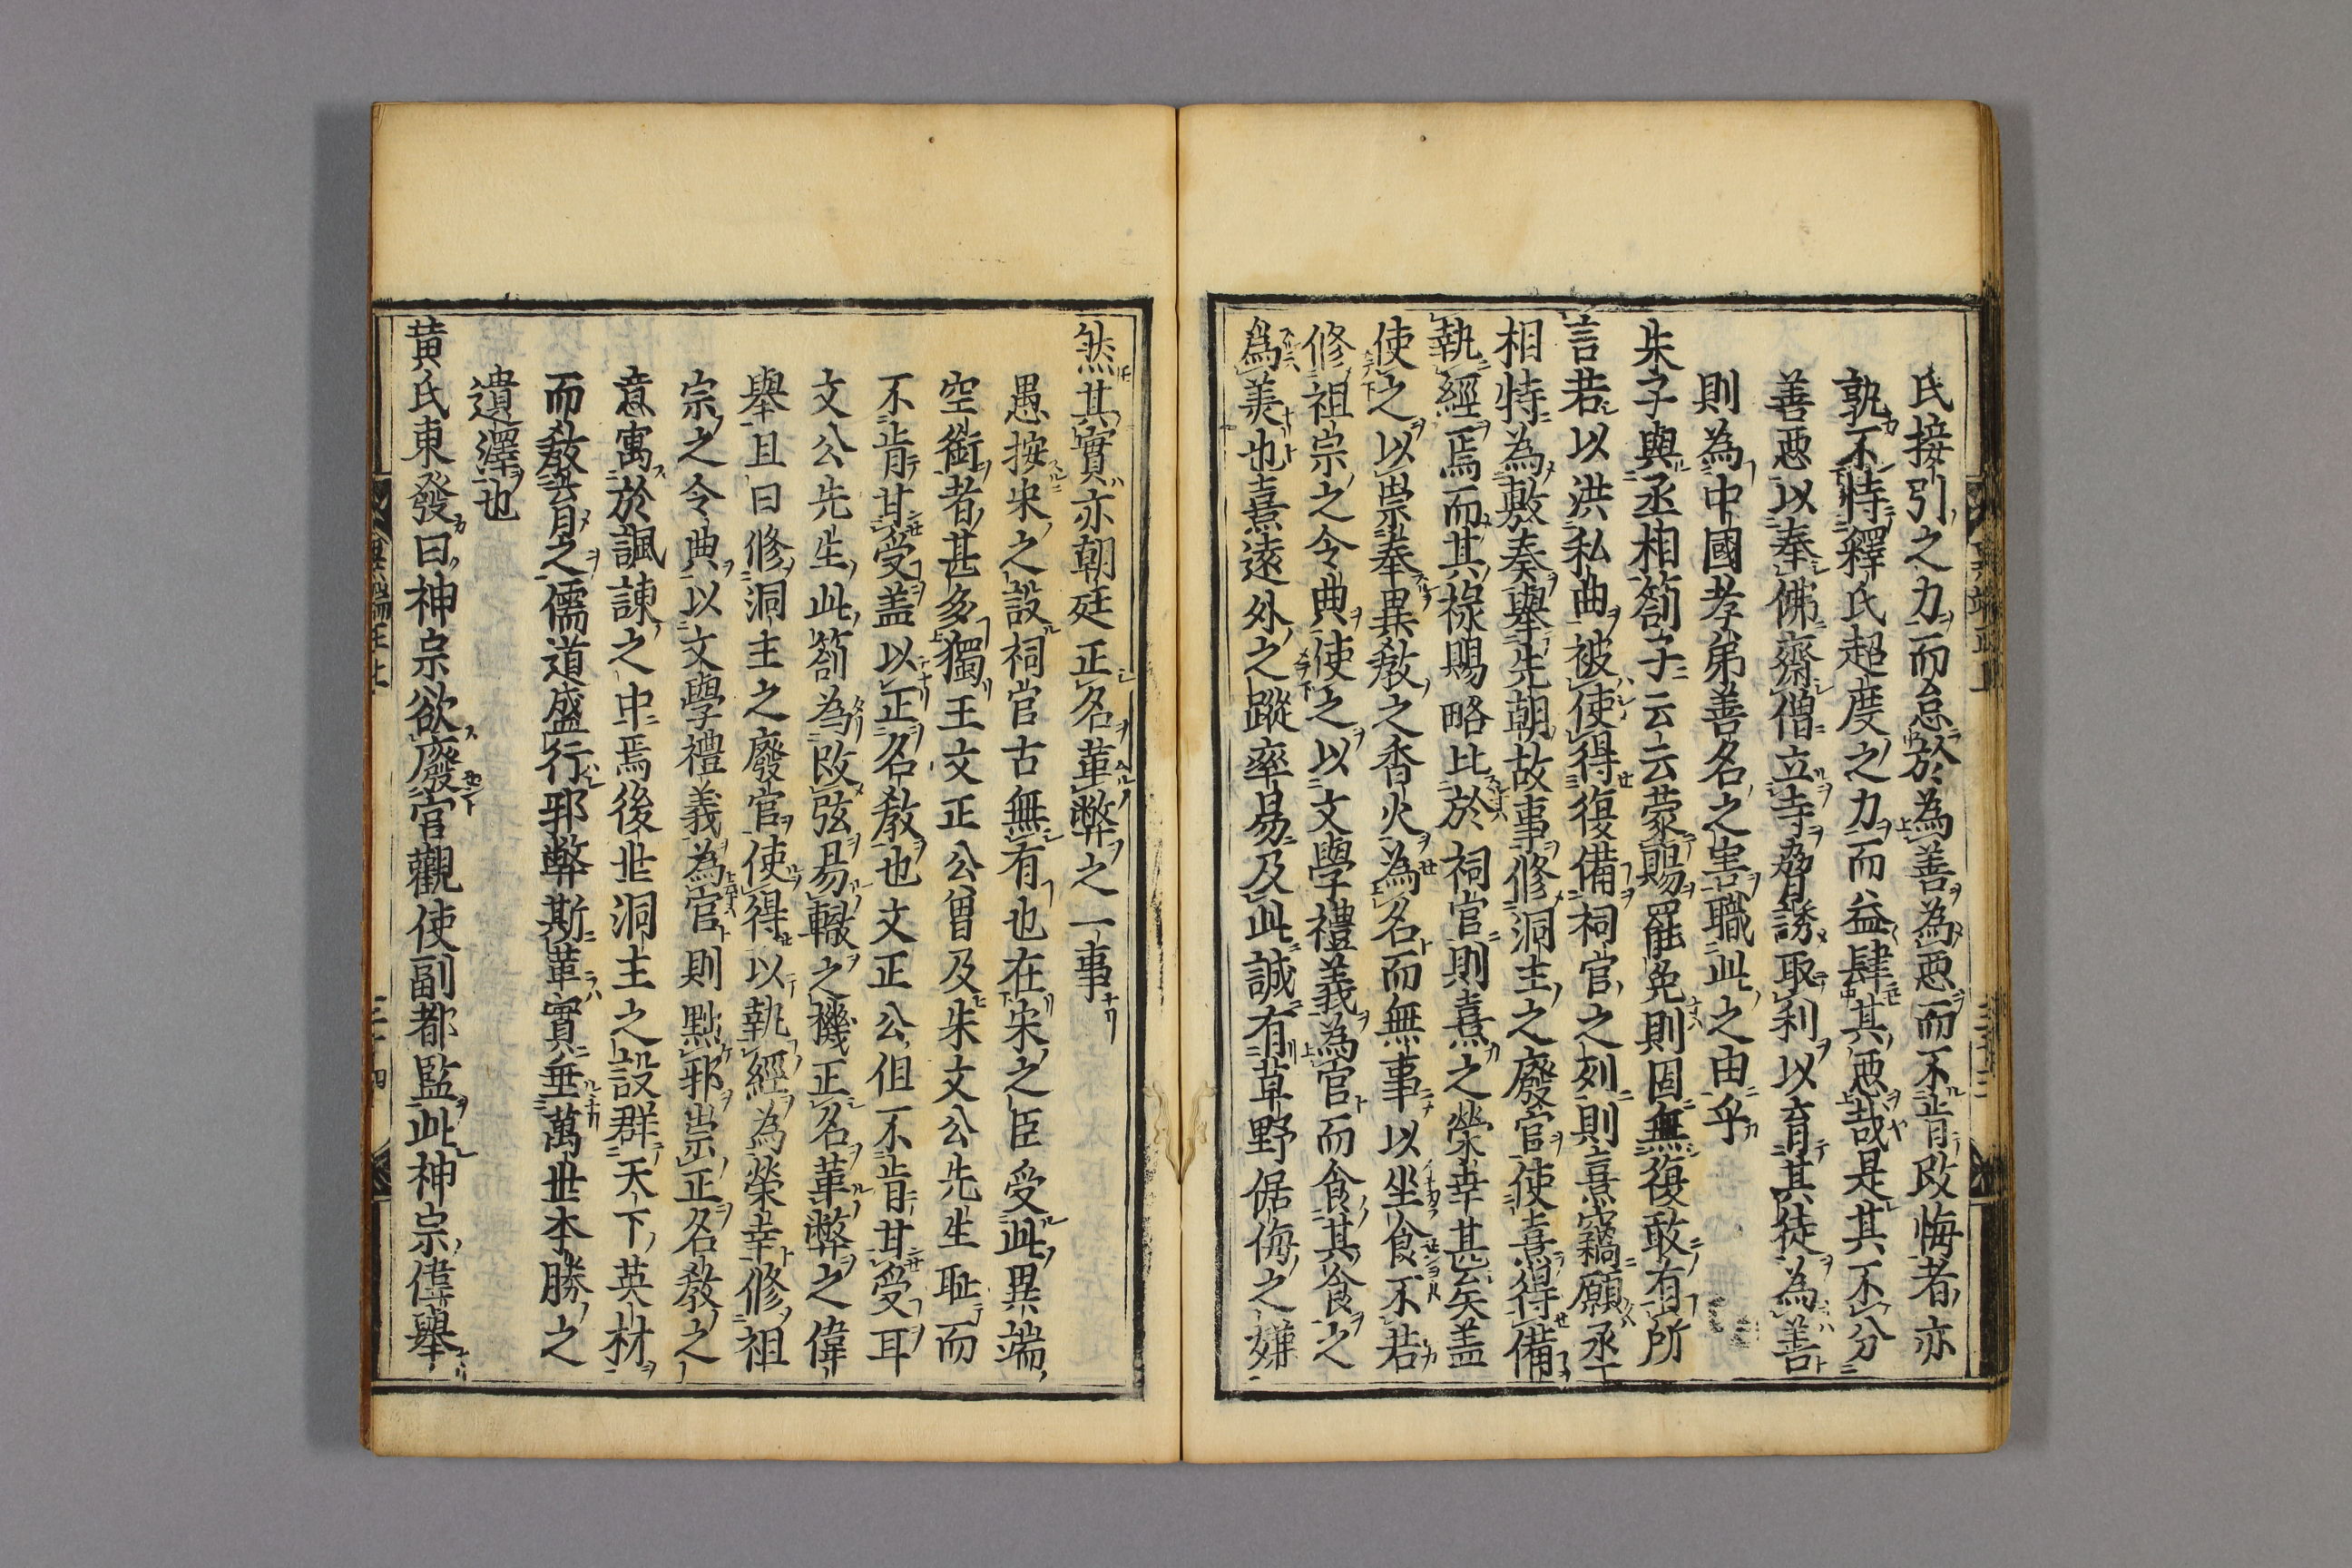 氏接引之力而怠於為善為惡而不肯改悔者亦
孰不恃釋氏超度之力而益肆其惡哉是其不分
善惡以奉佛齋僧立寺脅誘取利以育其徒為善
則為中國孝弟善名之害職此之由乎
朱子與丞相劄子云云蒙賜罷免則固無復敢有所
言若以洪私曲被使得復備祠官之列則熹竊願丞
相特為敷奏舉先朝故事修洞主之廢官使熹得備
執經焉而其祿賜略比於祠官則熹之榮幸甚矣盖
使之以崇奉異教之香火為名而無事以坐食不若
修祖宗之令典使之以文學禮義為官而食其食之
為美也熹遠外之蹤率易及此誠有草野倨侮之嫌
然其實亦朝廷正名革弊之一事
愚按宋之設祠官古無有也在宋之臣受此異端
空銜者甚多獨王文正公曽及朱文公先生耻而
不肯甘受盖以正名教也文正公但不肯甘受耳
文公先生此劄為改弦易轍之機正名革弊之偉
舉且曰修洞主之廢官使得以執經為榮幸修祖
宗之令典以文學禮義為官則黜邪崇正名教之
意寓於諷諫之中焉後世洞主之設群天下英材
而教育之儒道盛行邪弊斯革實垂萬世本勝之
遺澤也
黄氏東發曰神宗欲廢官觀使副都監此神宗偉舉